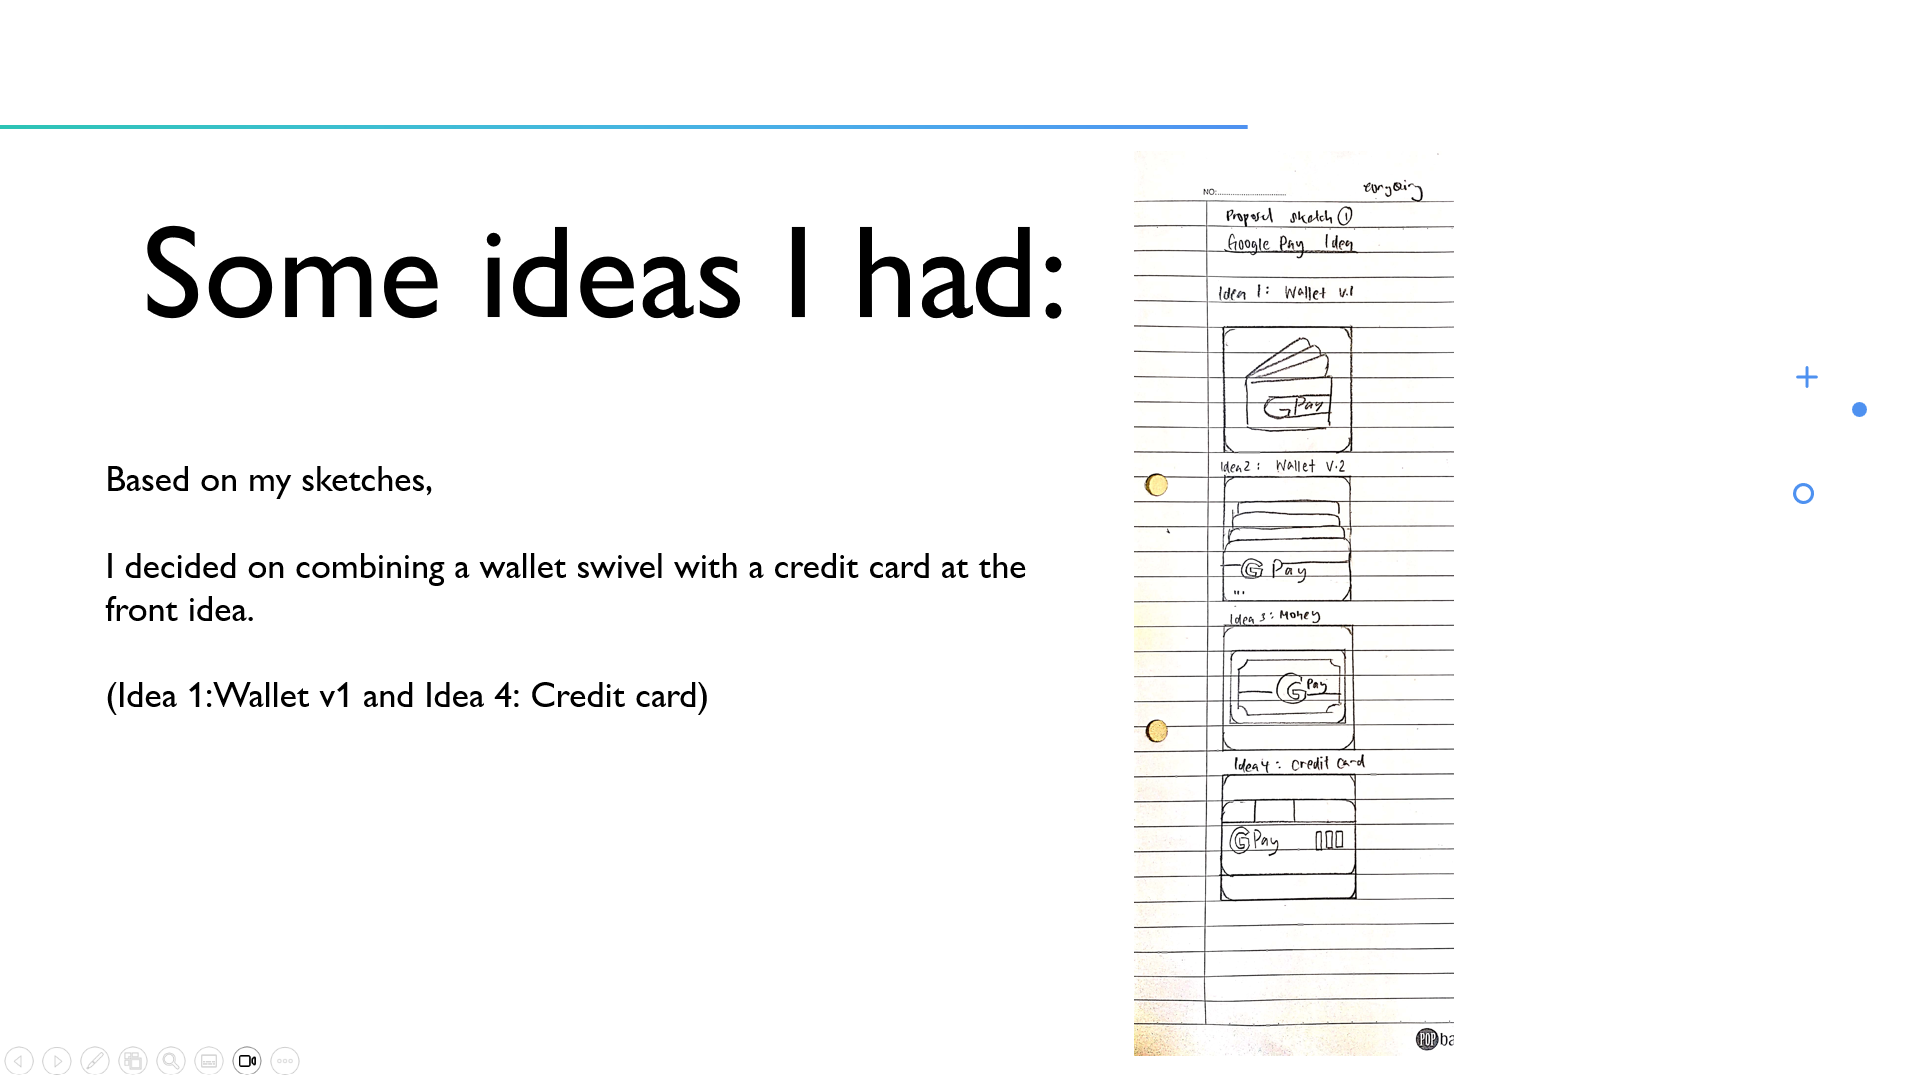 Some ideas I had:
Based on my sketches,
I decided on combining a wallet swivel with a credit card at the
front idea.
(Idea 1:Wallet v1 and Idea 4: Credit card)
NO:
Proposal sketch ①
Google Pay Idea
Idea 1: Wallet v.1
G Pay
Idea 2: Wallet v.2
G Pay
...
Idea 3: Money
G Pay
Idea 4: Credit card
G Pay
POP ba